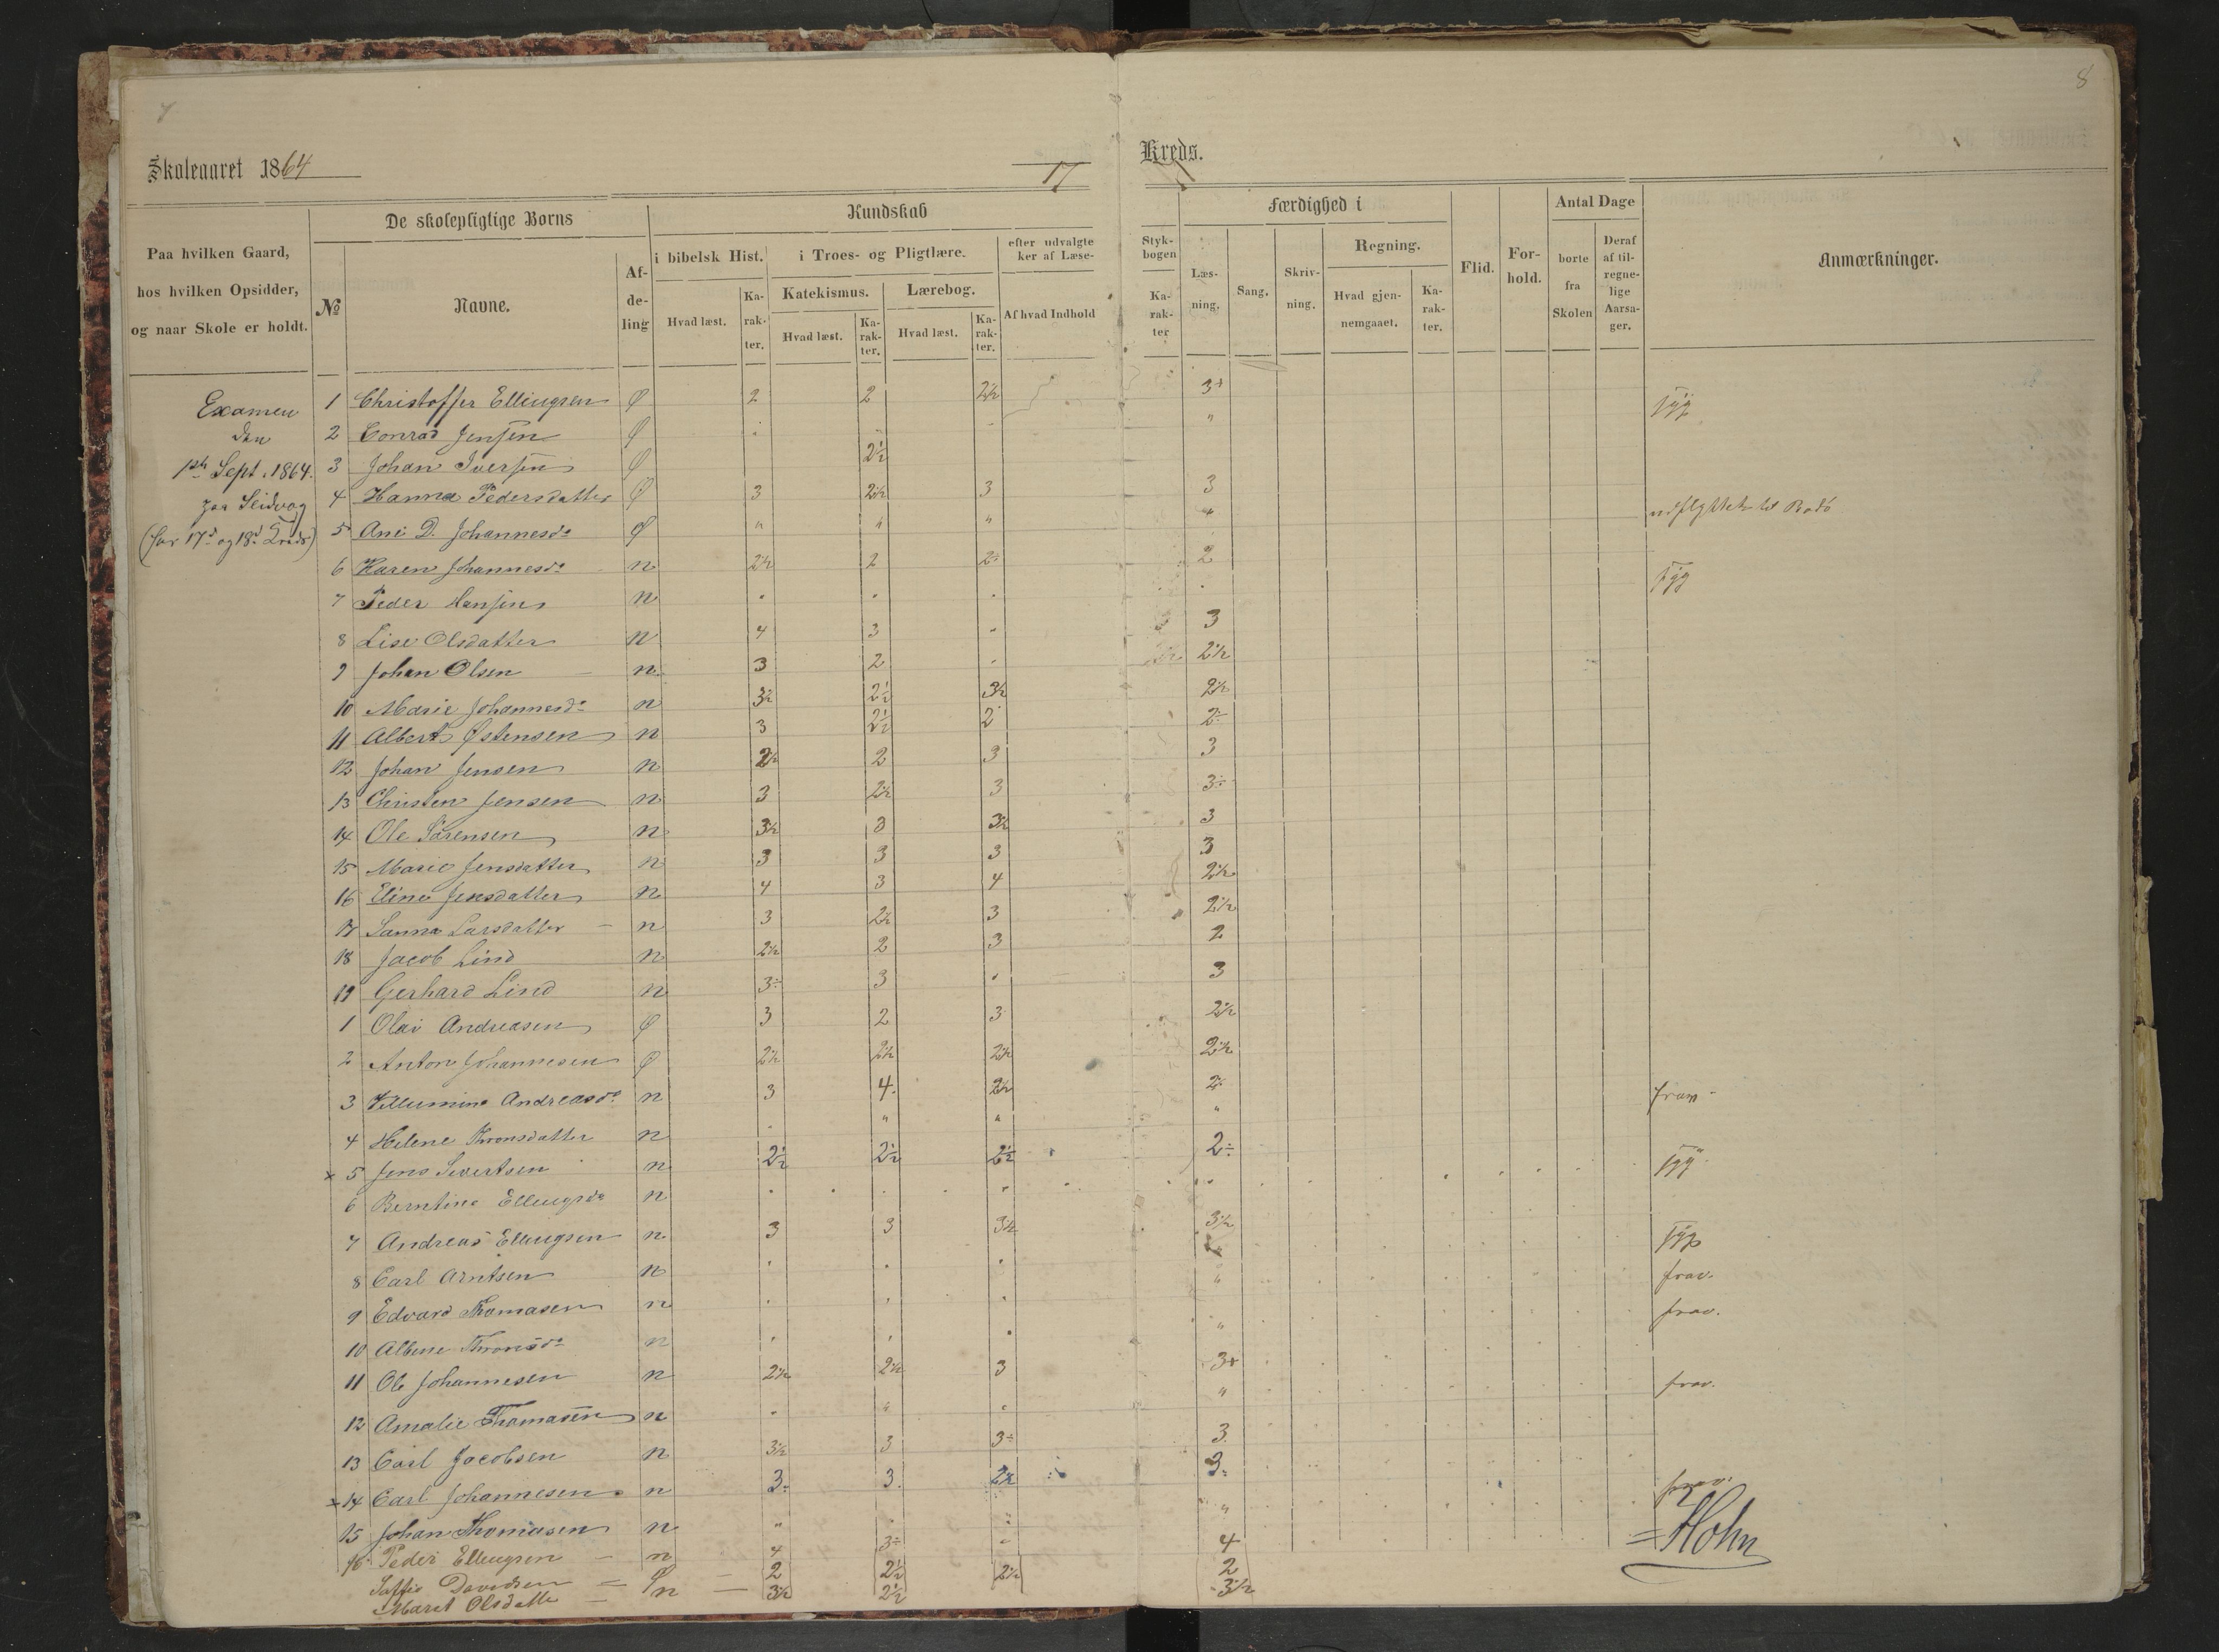 7
8
Skoleaaret 1864
17
Kreds.
Paa hvilken Gaard,
hos hvilken Opsidder,
og naar Skole er holdt.
De skolepligtige Börns
№
Navne.
Af-
de-
ling
Kundskab
i bibelsk Hist.
i Troes- og Pligtlære.
efter udvalgte
ker af Læse-
Hvad læst.
Ka-
rak-
ter.
Katekismus.
Lærebog.
Hvad læst.
Ka-
rak-
ter.
Hvad læst.
Ka-
rak-
ter.
Af hvad Indhold
Styk-
bogen
Ka-
rak-
ter
Færdighed i
Læs-
ning.
Sang.
Skriv-
ning.
Regning.
Hvad gjen-
nemgaaet.
Ka-
rak-
ter.
Flid.
For-
hold.
Antal Dage
borte
fra
Skolen
Deraf
af til-
regne-
lige
Aarsa-
ger.
Anmærkninger.
Examen
den
1st Sept. 1864.
paa Seidvog
(for 17d og 18d Kreds)
1 Christoffer Ellingsen Ø 2 2 2½ 3+
2 Conrad Jensen Ø "
3 Johan Iversen Ø 2½
4 Hanna Pedersdatter Ø 3 2½ 3 3
5 Ane D. Johannesd: Ø " " " " udflyttet til Bodö
6 Karen Johannesd: n 2½ 2 2÷ 2
7 Peder Hansen n syg
8 Lise Olsdatter n 4 3 " 3
9 Johan Olsen n 3 2 2½
10 Marie Johannesd: n 3½ 2½ 3½ 2½
11 Albert Østensen n 3 2½ 2 2÷
12 Johan Jensen n 2½ 2 3 3
13 Christen Jensen n 3 2½ 3 3÷
14 Ole Sörensen n 3½ 3 3½ 3
15 Marie Jensdatter n 3 3 3 3
16 Eline Jensdatter n 4 3 4 2½
17 Sanna Larsdatter n 3 2½ 3 2½
18 Jacob Lind n 2½ 2 3 2
19 Gerhard Lind n 3÷ 3 3
1 Olai Andreasen Ø 3 2 3 2½
2 Anton Johannesen Ø 2½ 2½ 2½ 2½
3 Villumine Andreasd: n 3 4 2½ 2
4 Helene Thronsdatter n " " " frav
× 5 Jens Sivertsen n 2½ 2½ 2½ 2÷
6 Berntine Ellingsd: n syg
7 Andreas Ellingsen n 3 3 3½ 3½
8 Carl Arntsen n syg
9 Edvard Thomasen n frav.
10 Albine Thronsd: n " frav.
11 Ole Johannesen n 2½ 2½ 3 3+
12 Amalie Thomasen n " " frav.
13 Carl Jacobsen n 3½ 3 3÷ 3
× 14 Carl Johannesen n 3÷ 3 2½ 3÷
15 Johan Thomasen n " " frav.
16 Peder Ellingsen n 4 3÷ 4
Davidsen Ø 2 2½ 2½ 2
Maret Olsdatte n 3½ 2½ 3½
Hohn